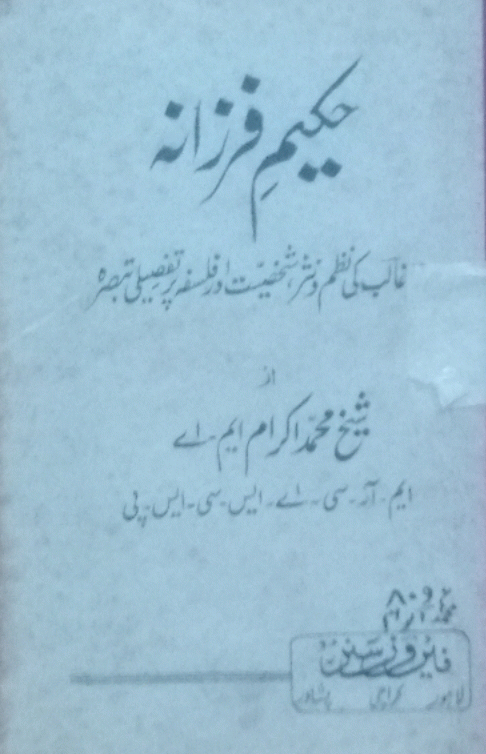 حکیمِ فرزانہ
غالب کی نظم و نثر، شخصیت اور فلسفہ پر تفصیلی تبصرہ
از
شیخ محمد اکرام ایم-اے
ایم-آر-سی-اے-ایس-سی-ایس-پی
فیروز سنز
لاہور کراچی پشاور